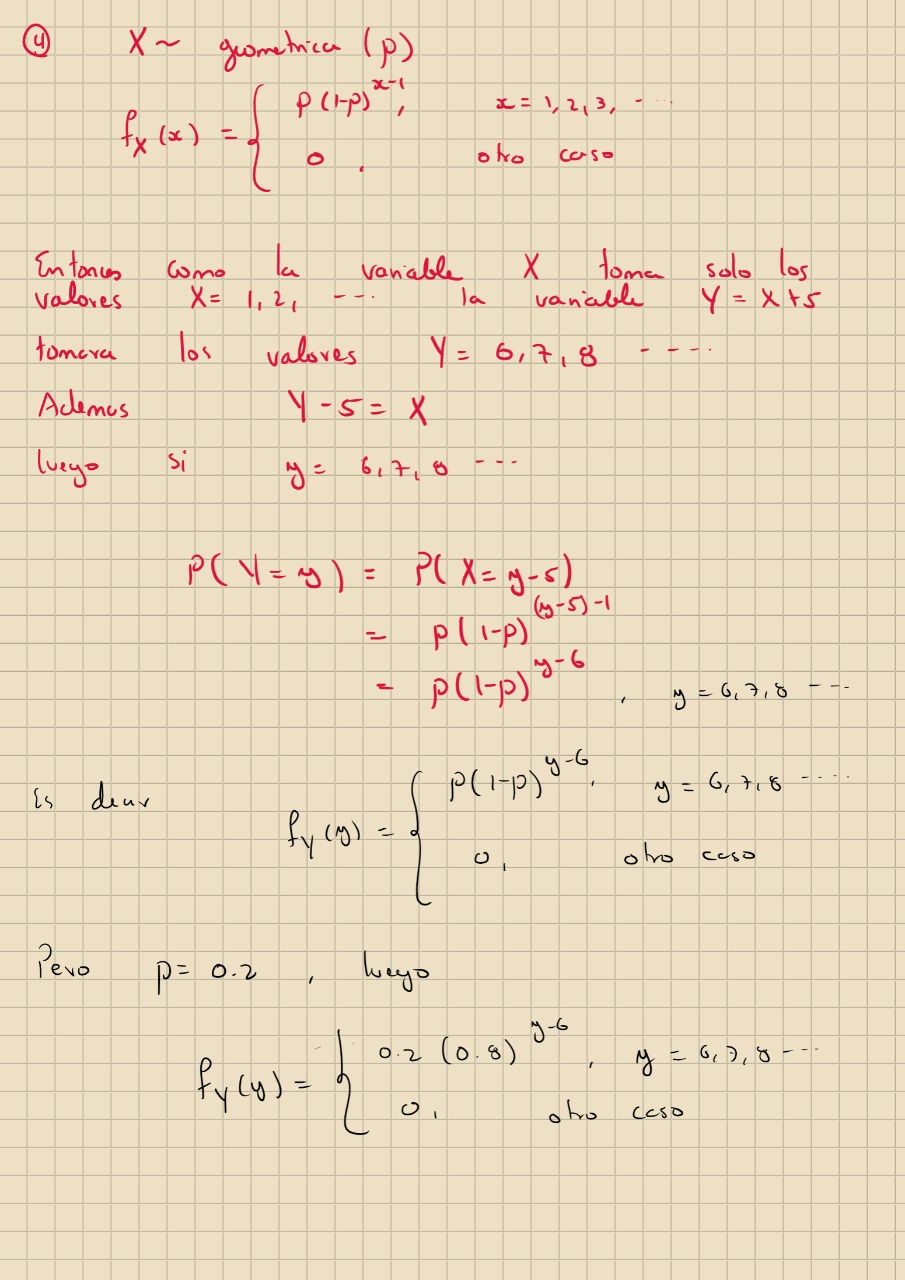 ④ X ~ geometrica (p)
f_X(x) = { p(1-p)^{x-1}, x = 1, 2, 3, ----
0, otro caso
Entonces como la variable X toma solo los
valores X = 1, 2, ---- la variable Y = X+5
tomara los valores Y = 6, 7, 8 ----
Ademas Y - 5 = X
luego si y = 6, 7, 8 ---
P(Y = y) = P(X = y-5)
= p(1-p)^{(y-5)-1}
= p(1-p)^{y-6}, y = 6, 7, 8 ---
Es decir
f_Y(y) = { p(1-p)^{y-6}, y = 6, 7, 8 ----
0, otro caso
Pero p = 0.2, luego
f_Y(y) = { 0.2 (0.8)^{y-6}, y = 6, 7, 8 ---
0, otro caso